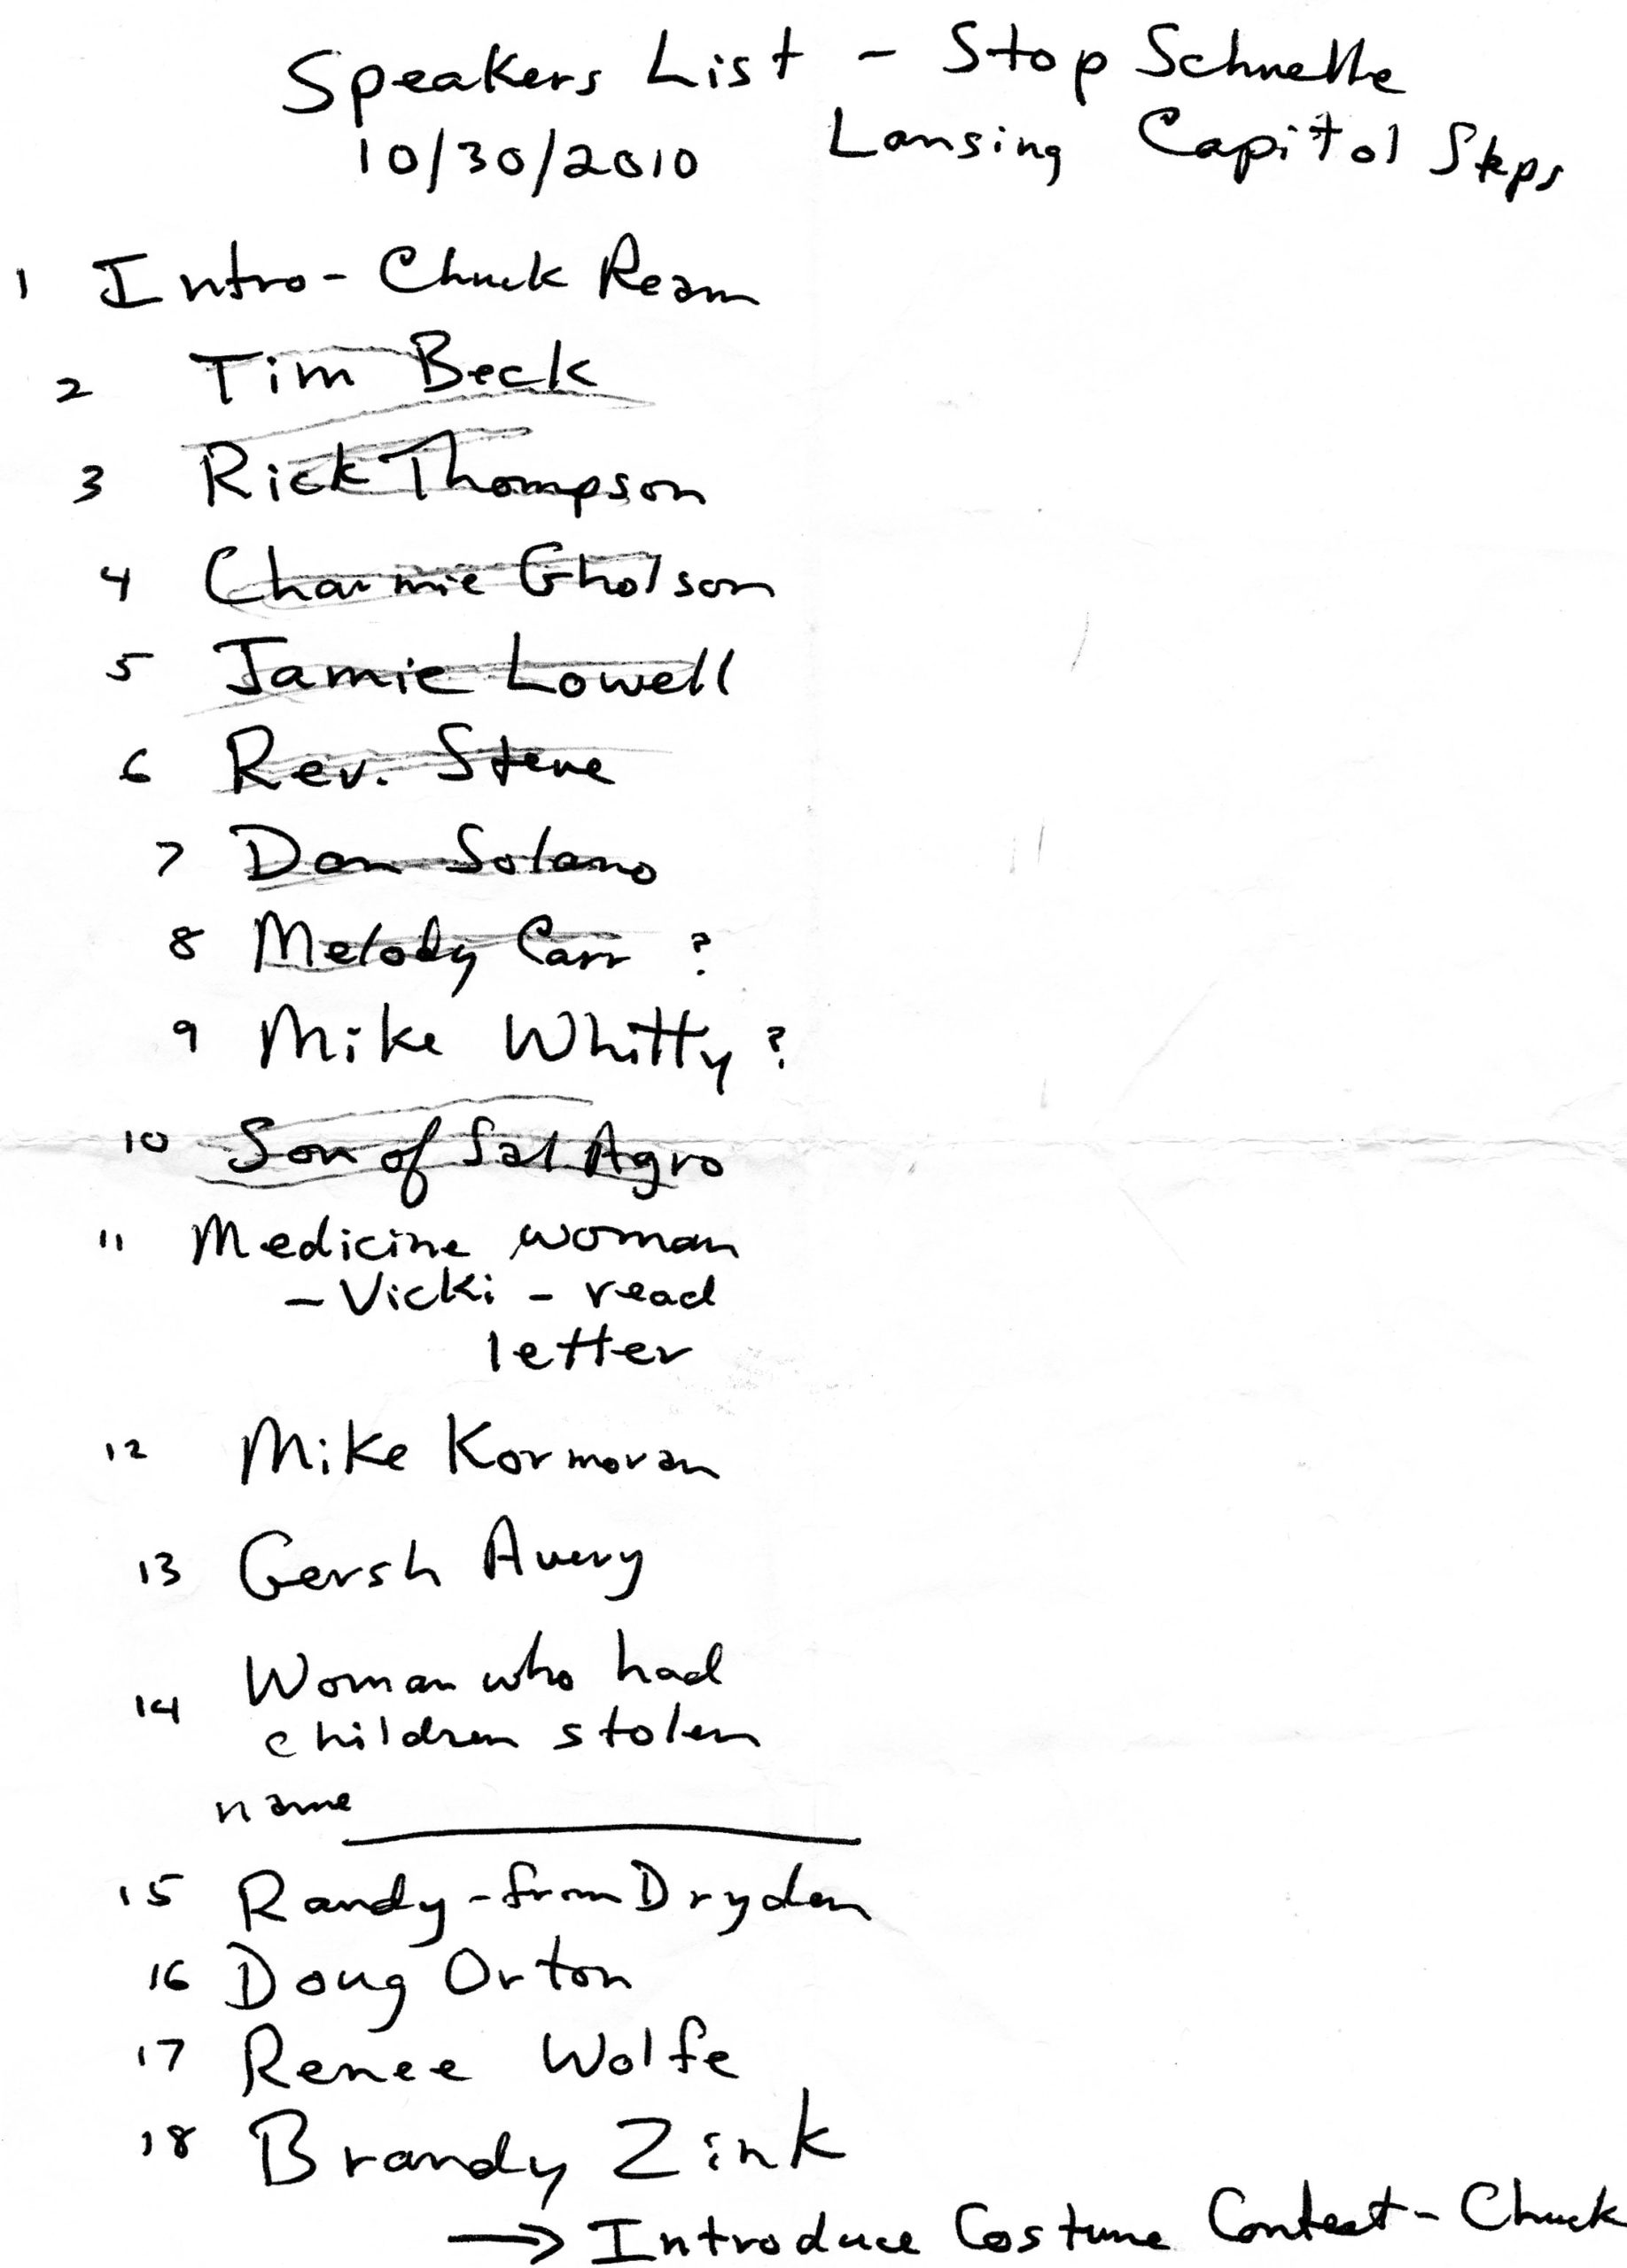 Speakers List - Stop Schuette
10/30/2010 Lansing Capitol Steps
1 Intro - Chuck Ream
2 Tim Beck
3 Rick Thompson
4 Charmie Gholson
5 Jamie Lowell
6 Rev. Steve
7 Don Solano
8 Melody Carr ?
9 Mike Whitty ?
10 Son of Sal Agro
11 Medicine woman
- Vicki - read
letter
12 Mike Kormoran
13 Gersh Avery
14 Woman who had
children stolen
name
15 Randy - from Dryden
16 Doug Orton
17 Renee Wolfe
18 Brandy Zink
→ Introduce Costume Contest - Chuck